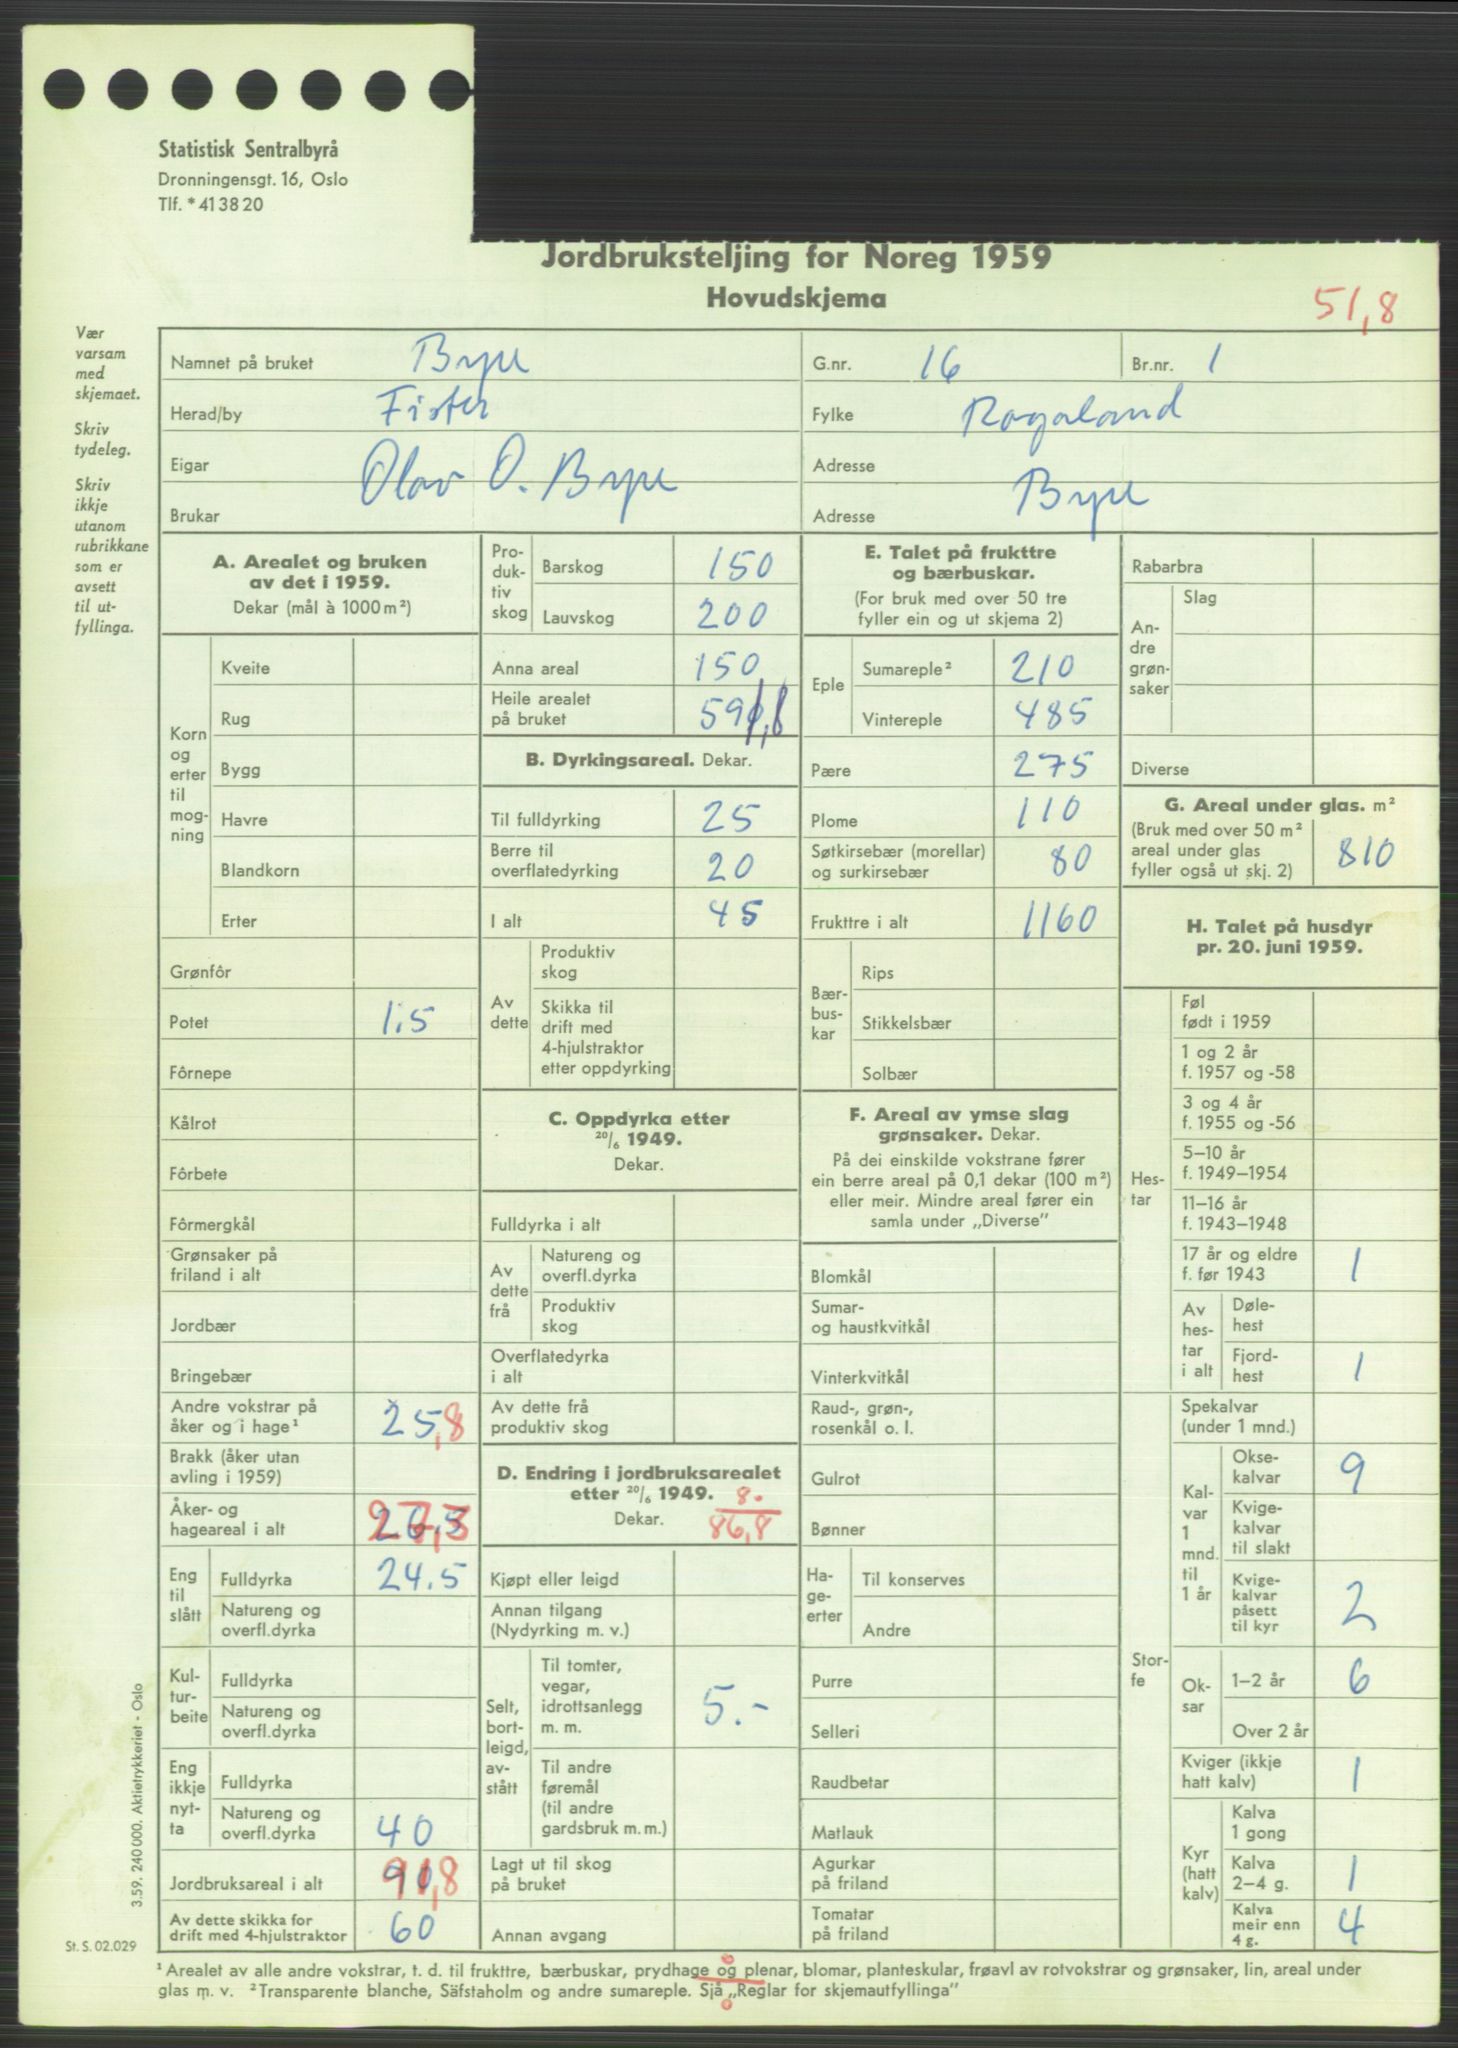 Statistisk Sentralbyrå
Dronningensgt. 16, Oslo
Tlf. * 41 38 20
Jordbruksteljing for Noreg 1959
Hovudskjema
51,8
Vær
varsam
med
skjemaet.
Skriv
tydeleg.
Skriv
ikkje
utanom
rubrikkane
som er
avsett
til ut-
fyllinga.
Namnet på bruket Brye G.nr. 16 Br.nr. 1
Herad/by Fister Fylke Rogaland
Eigar Olav O. Brye Adresse
Brukar Adresse Brye
A. Arealet og bruken
av det i 1959.
Dekar (mål à 1000 m²)
Korn
og
erter
til
mog-
ning
Kveite
Rug
Bygg
Havre
Blandkorn
Erter
Grønfôr
Potet 1.5
Fôrnepe
Kålrot
Fôrbete
Fôrmergkål
Grønsaker på
friland i alt
Jordbær
Bringebær
Andre vokstrar på
åker og i hage¹ 25,8
Brakk (åker utan
avling i 1959)
Åker- og
hageareal i alt 27,3
Eng
til
slått
Fulldyrka 24.5
Natureng og
overfl.dyrka
Kul-
tur-
beite
Fulldyrka
Natureng og
overfl.dyrka
Eng
ikkje
nyt-
ta
Fulldyrka
Natureng og
overfl.dyrka 40
Jordbruksareal i alt 91,8
Av dette skikka for
drift med 4-hjulstraktor 60
Pro-
duk-
tiv
skog
Barskog 150
Lauvskog 200
Anna areal 150
Heile arealet
på bruket 591,8
B. Dyrkingsareal. Dekar.
Til fulldyrking 25
Berre til
overflatedyrking 20
I alt 45
Av
dette
Produktiv
skog
Skikka til
drift med
4-hjulstraktor
etter oppdyrking
C. Oppdyrka etter
20/6 1949.
Dekar.
Fulldyrka i alt
Av
dette
frå
Natureng og
overfl.dyrka
Produktiv
skog
Overflatedyrka
i alt
Av dette frå
produktiv skog
D. Endring i jordbruksarealet
etter 20/6 1949. 8.
Dekar. 86,8
Kjøpt eller leigd
Annan tilgang
(Nydyrking m. v.)
Selt,
bort-
leigd,
av-
stått
Til tomter,
vegar,
idrottsanlegg
m. m. 5.-
Til andre
føremål
(til andre
gardsbruk m. m.)
Lagt ut til skog
på bruket
Annan avgang
E. Talet på frukttre
og bærbuskar.
(For bruk med over 50 tre
fyller ein og ut skjema 2)
Eple
Sumareple² 210
Vintereple 485
Pære 275
Plome 110
Søtkirsebær (morellar)
og surkirsebær 80
Frukttre i alt 1160
Bær-
bus-
kar
Rips
Stikkelsbær
Solbær
F. Areal av ymse slag
grønsaker. Dekar.
På dei einskilde vokstrane fører
ein berre areal på 0,1 dekar (100 m²)
eller meir. Mindre areal fører ein
samla under „Diverse”
Blomkål
Sumar-
og haustkvitkål
Vinterkvitkål
Raud-, grøn-,
rosenkål o. l.
Gulrot
Bønner
Ha-
ge-
erter
Til konserves
Andre
Purre
Selleri
Raudbetar
Matlauk
Agurkar
på friland
Tomatar
på friland
Rabarbra
An-
dre
grøn-
saker
Slag
Diverse
G. Areal under glas. m²
(Bruk med over 50 m²
areal under glas
fyller også ut skj. 2) 810
H. Talet på husdyr
pr. 20. juni 1959.
Hes-
tar
Føl
født i 1959
1 og 2 år
f. 1957 og -58
3 og 4 år
f. 1955 og -56
5–10 år
f. 1949–1954
11–16 år
f. 1943–1948
17 år og eldre
f. før 1943 1
Av
hes-
tar
i alt
Døle-
hest
Fjord-
hest 1
Stor-
fe
Spekalvar
(under 1 mnd.)
Kal-
var
1
mnd.
til
1 år
Okse-
kalvar 9
Kvige-
kalvar
til slakt
Kvige-
kalvar
påsett
til kyr 2
Ok-
sar
1–2 år 6
Over 2 år
Kviger (ikkje
hatt kalv) 1
Kyr
(hatt
kalv)
Kalva
1 gong
Kalva
2–4 g. 1
Kalva
meir enn
4 g. 4
3.59. 240 000. Aktietrykkeriet - Oslo
St. S. 02.029
¹ Arealet av alle andre vokstrar, t. d. til frukttre, bærbuskar, prydhage og plenar, blomar, planteskular, frøavl av rotvokstrar og grønsaker, lin, areal under
glas m. v. ² Transparente blanche, Säfstaholm og andre sumareple. Sjå „Reglar for skjemautfyllinga”